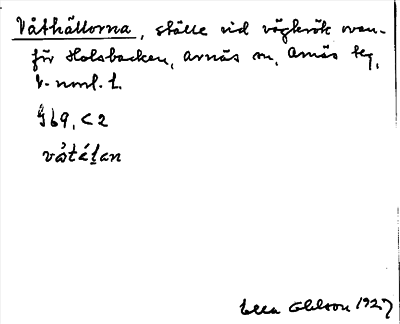 Våthällorna, ställe vid vägkrök ovan-
för Holsbacken, Arnäs sn, Arnäs tg,
V-norrl. l.
969, < 2
vå̀tálan
Ella Ohlson 1927